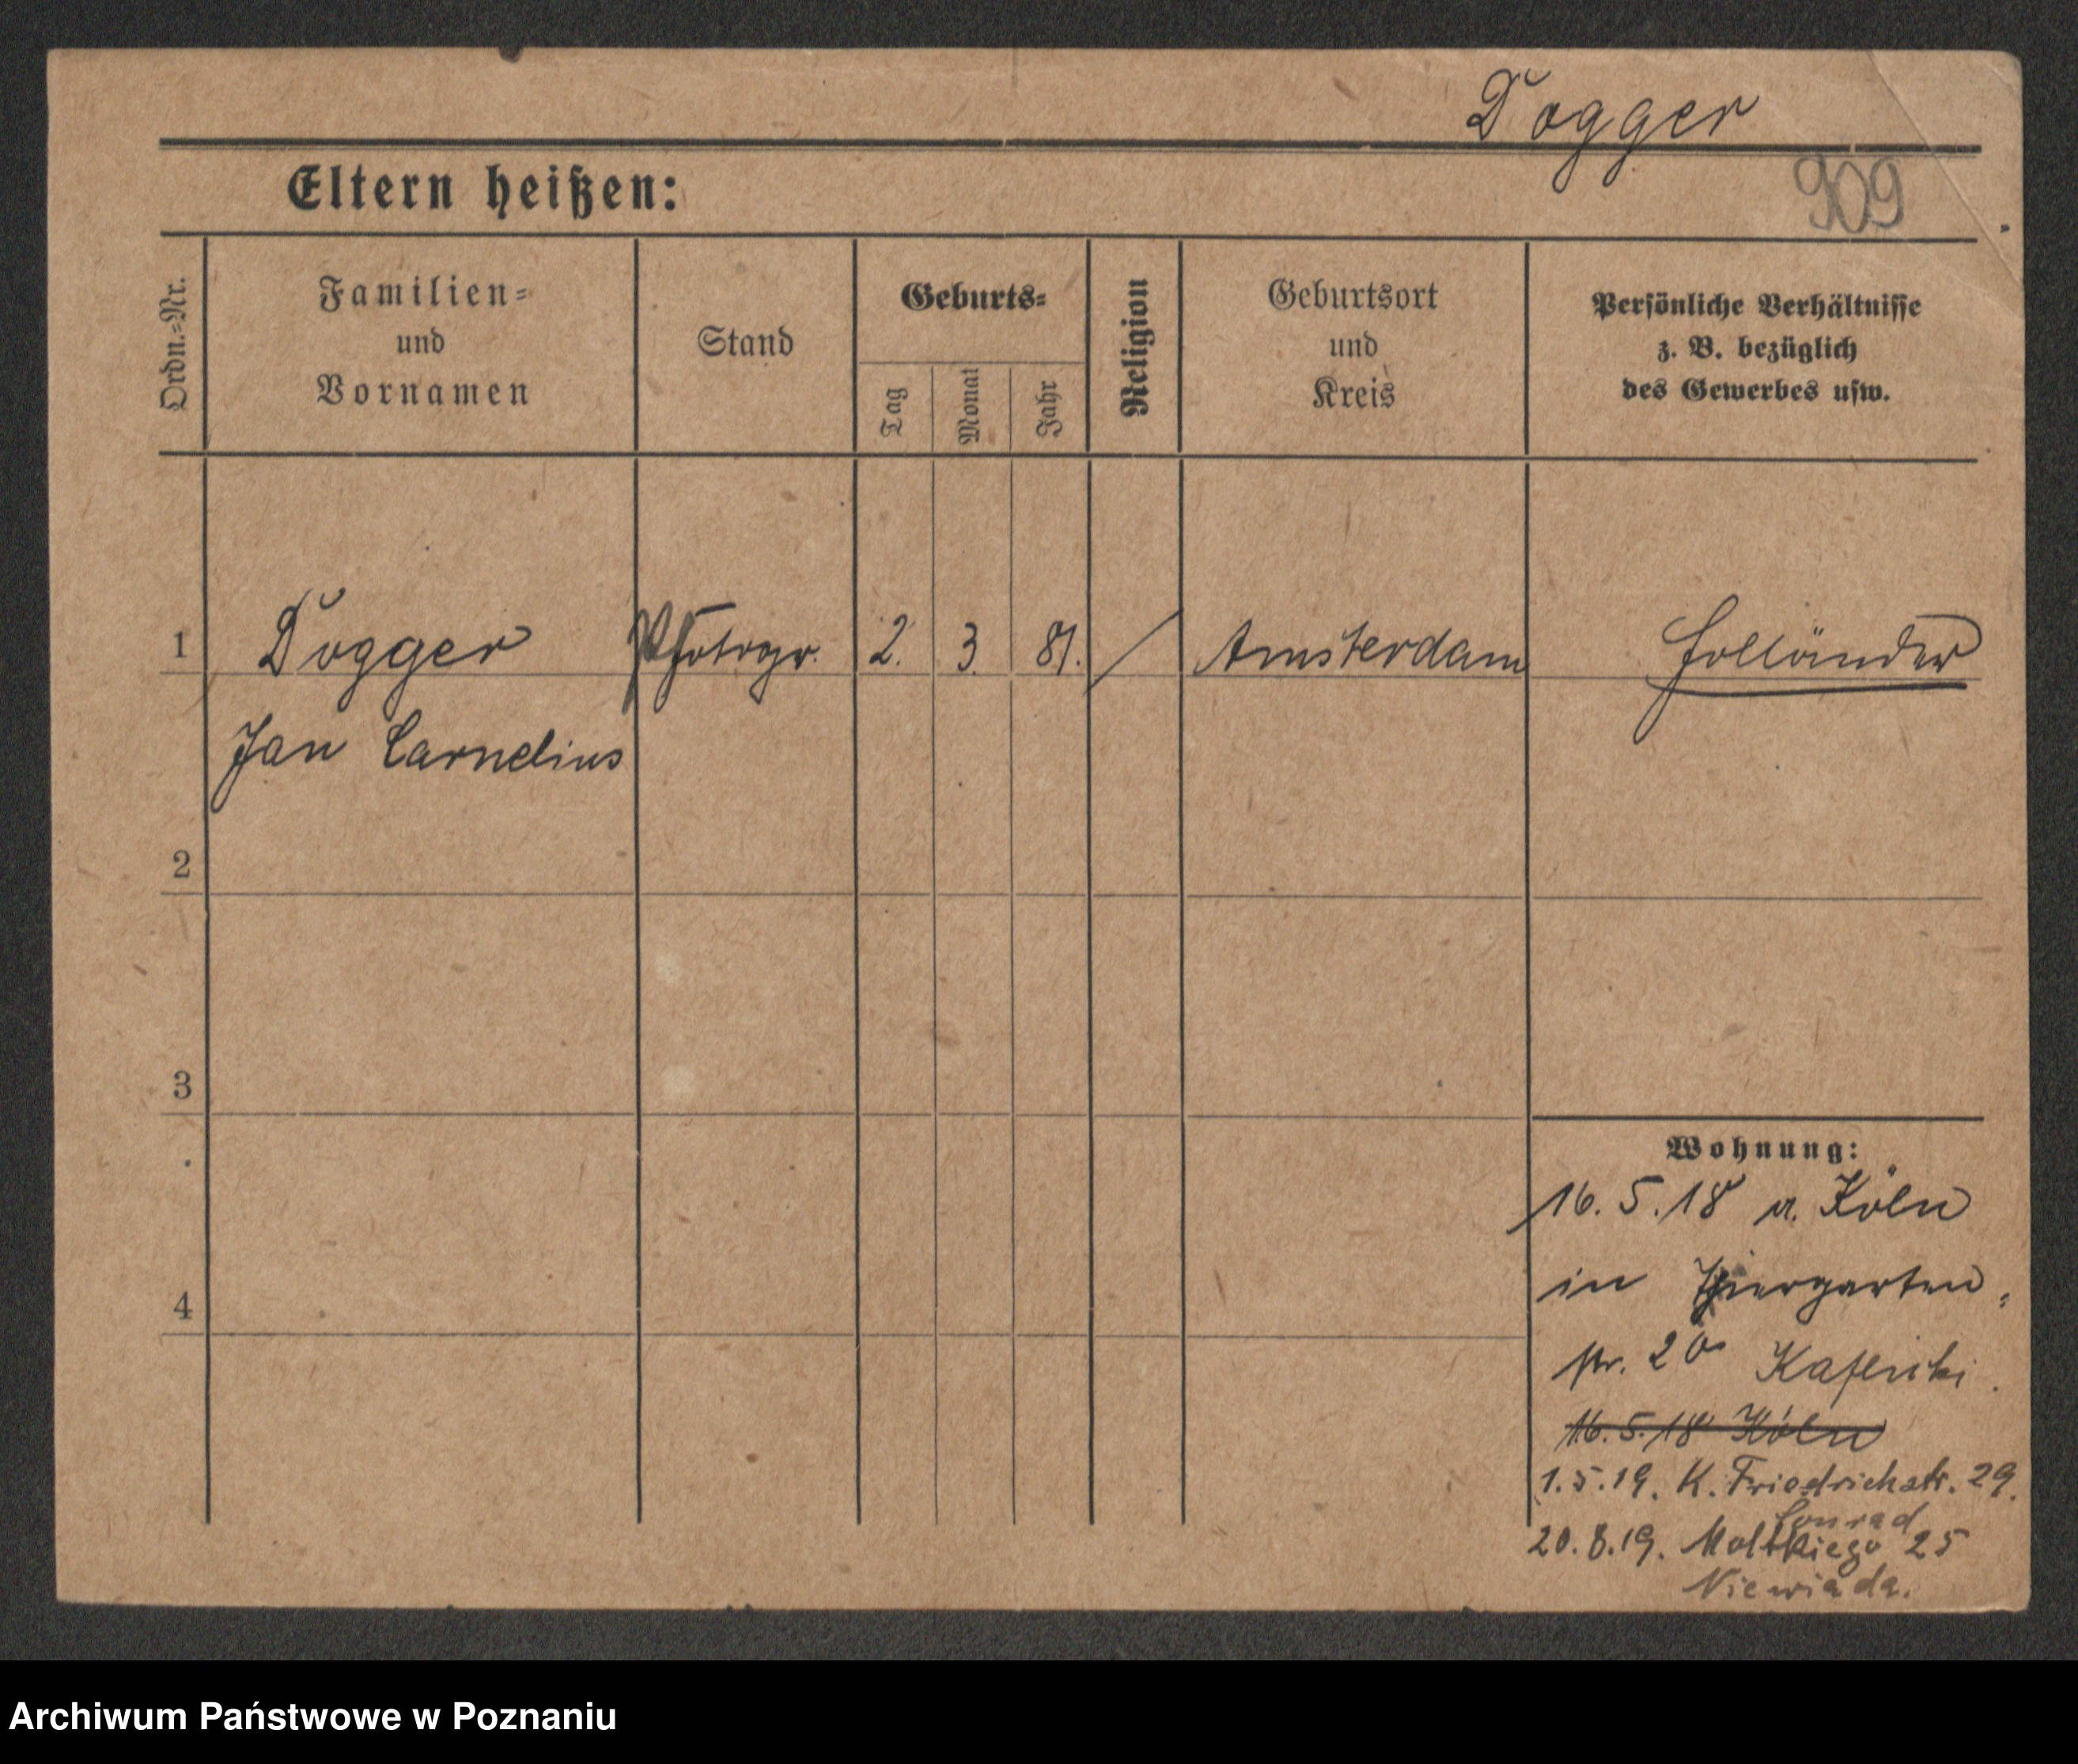 Dogger
909
Eltern heißen:
Ordn.=Nr.
Familien=
und
Vornamen
Stand
Geburts=
Tag
Monat
Jahr
Religion
Geburtsort
und
Kreis
Persönliche Verhältnisse
z. B. bezüglich
des Gewerbes usw.
1 Dogger 2. 3. 81. / Amsterdam Holländer
Jan Carnelius
2
3
4
Wohnung:
16. 5. 18 a. Köln
in Tiergarten=
str. 20
16. 5. 18 Köln
1. 5. 19. K. Friedrichstr. 29.
Conrad
20. 8. 19. Moltkiego 25
Niewiada.
Archiwum Państwowe w Poznaniu